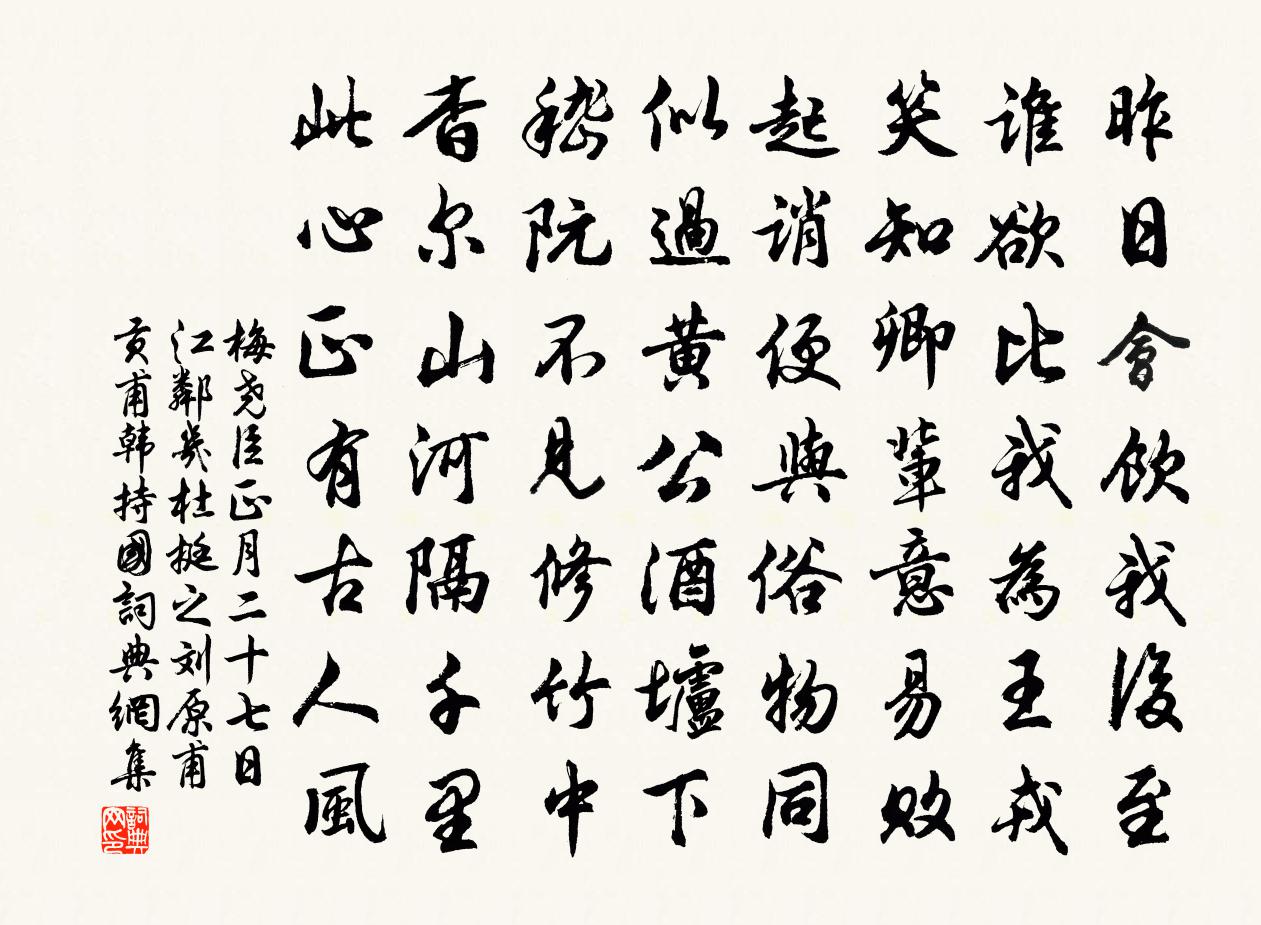 昨日會飲我後至
誰欲比我為王戎
笑知卿輩意易敗
起誚便與俗物同
似過黃公酒壚下
嵇阮不見修竹中
杳尔山河隔千里
此心正有古人風
梅尧臣正月二十七日
江鄰幾杜挺之刘原甫
贡甫韩持國詞典網集
詞典网印